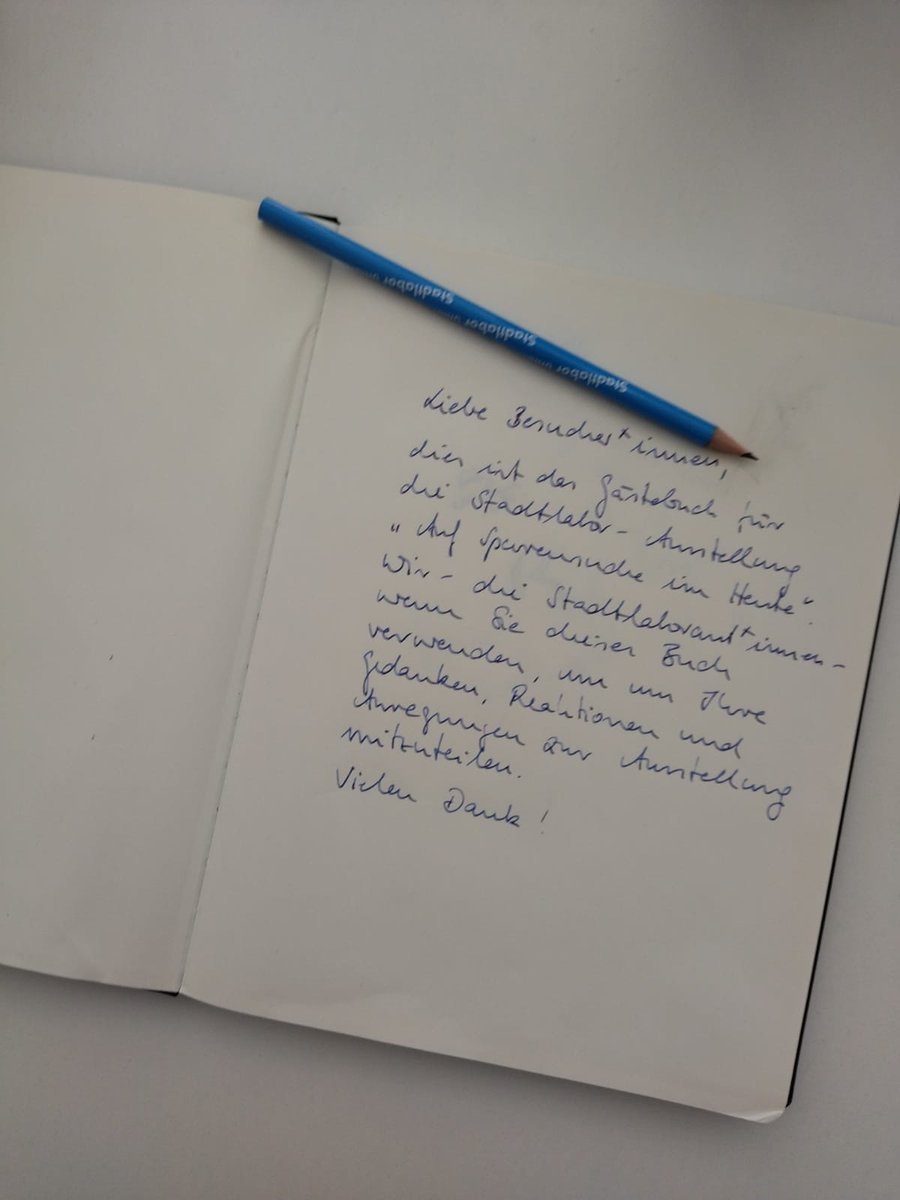 Stadtlabor Stadtlabor Stadtlabor
Liebe Besucher*innen,
dies ist das Gästebuch für
die Stadtlabor-Ausstellung
"Auf Spurensuche im Heute".
Wir - die Stadtlaborant*innen -
wenn Sie dieses Buch
verwenden, um uns Ihre
Gedanken, Reaktionen und
Anregungen zur Ausstellung
mitzuteilen.
Vielen Dank!